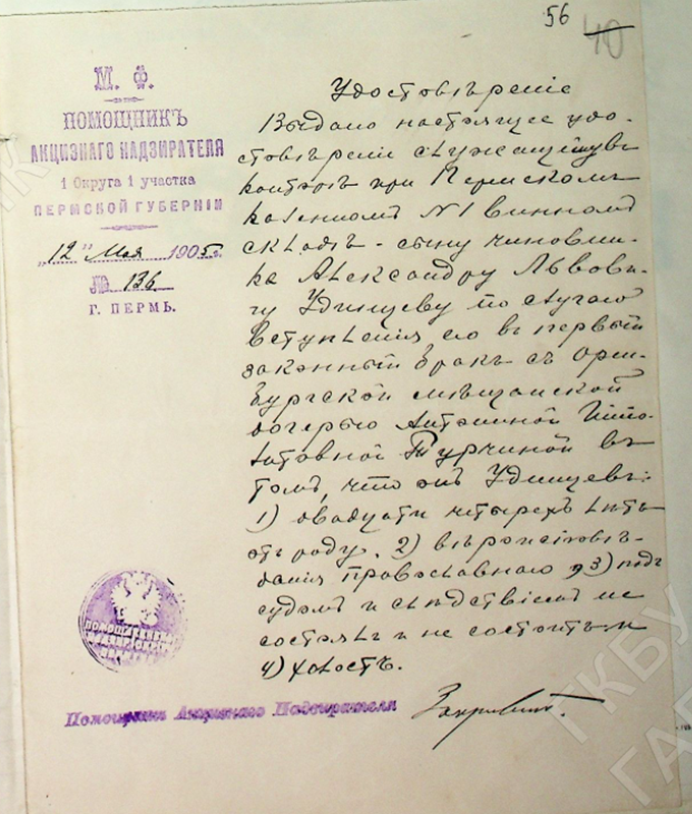 56
40
М. Ф.
ПОМОЩНИКЪ
АКЦИЗНАГО НАДЗИРАТЕЛЯ
1 Округа 1 участка
ПЕРМСКОЙ ГУБЕРНІИ
„12" Мая 1905 г.
№ 136
Г. ПЕРМЬ.
Удостовѣреніе
Выдано настоящее удо-
стовѣреніе служащему въ
конторѣ при Пермскомъ
казенномъ №1 винномъ
складѣ - сыну чиновни-
ка Александру Львови-
чу Удинцеву по случаю
вступленія его въ первый
законный бракъ съ Орен-
бургской мѣщанской
дочерью Антониной Ипо-
литовной Турчиной въ
томъ, что онъ Удинцевъ:
1) двадцати четырехъ лѣтъ
отъ роду, 2) вѣроисповѣ-
данія православнаго, 3) подъ
судомъ и слѣдствіемъ не
состоялъ и не состоитъ и
4) холостъ.
Помощникъ Акцизнаго Надзирателя
ГКБУ